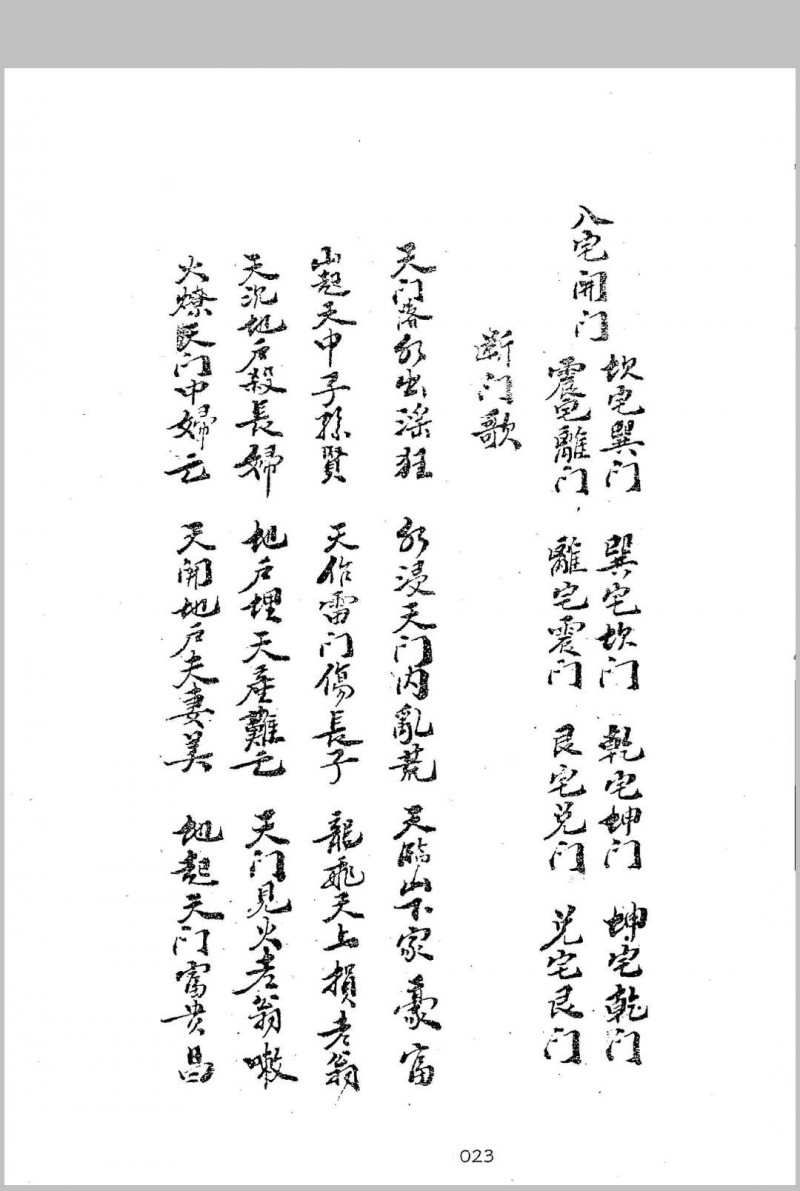 八宅開门
坎宅巽门 巽宅坎门 乾宅坤门 坤宅乾门
震宅離门 離宅震门 艮宅兑门 兑宅艮门
断门歌
天门落水出淫狂 水浸天门内亂荒 天臨山下家豪富
山起天中子孫賢 天作雷门傷長子 龍飛天上損老翁
天沉地户殺長婦 地户埋天產難亡 天门見火老翁嗽
火燎天门中婦亡 天開地户夫妻美 地起天门富贵昌
023